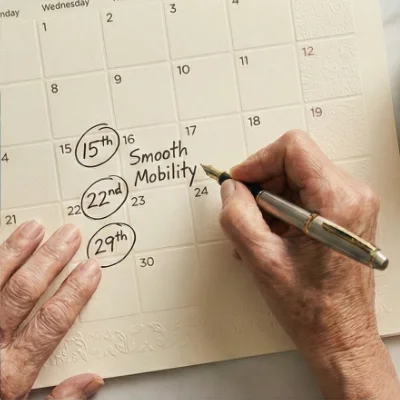 nday Wednesday
1 2 3 4
8 9 10 11 12
4 15 15th 16 17 18 19
Smooth
Mobility
21 22 22nd 23 24
29th 30